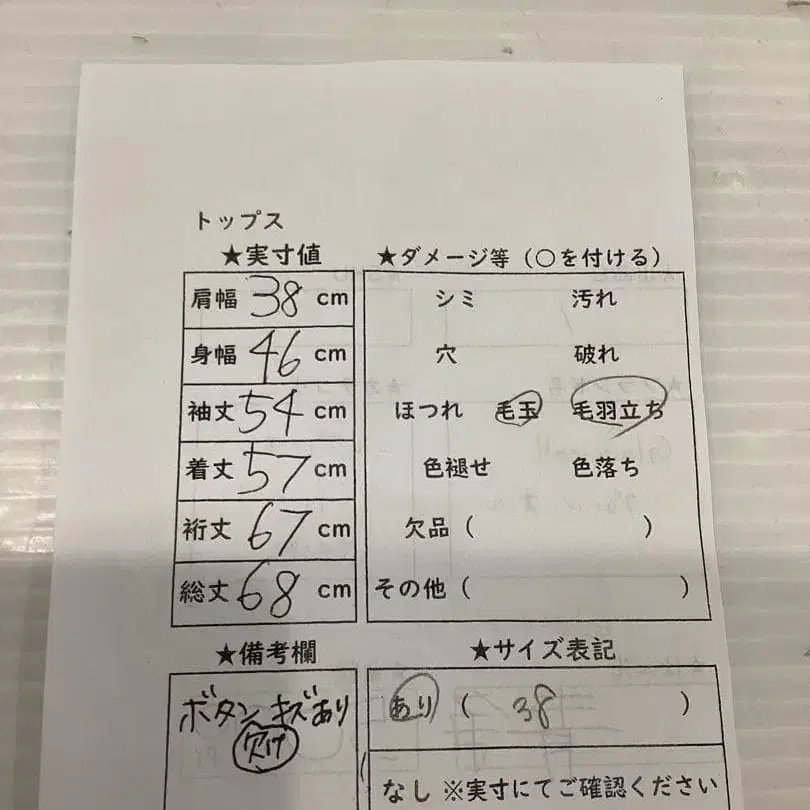 トップス
★実寸値
肩幅 38 cm
身幅 46 cm
袖丈 54 cm
着丈 57 cm
裄丈 67 cm
総丈 68 cm
★ダメージ等（○を付ける）
シミ 汚れ
穴 破れ
ほつれ 毛玉 毛羽立ち
色褪せ 色落ち
欠品（ ）
その他（ ）
★備考欄
ボタン キズあり
欠け
★サイズ表記
あり（ 38 ）
なし ※実寸にてご確認ください